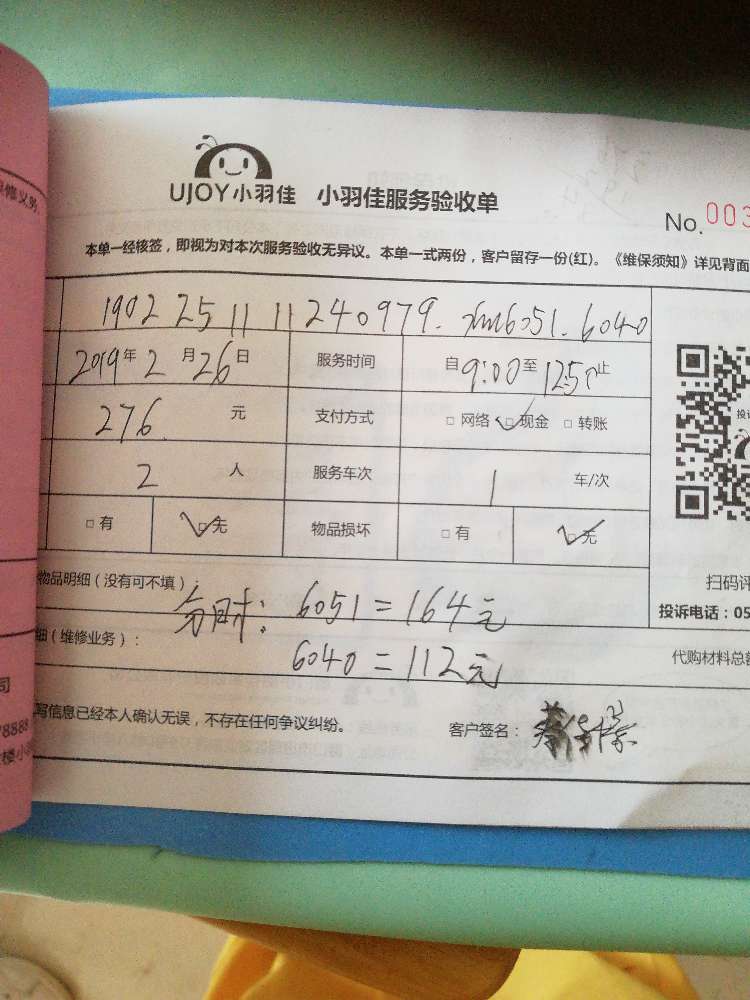 UJOY小羽佳 小羽佳服务验收单
No. 003
本单一经核签，即视为对本次服务验收无异议。本单一式两份，客户留存一份(红)。《维保须知》详见背面
1902251111240979. xm6051.6040
2019年2月26日 服务时间 自9:00至1250止
276元 支付方式 □网络 ☑现金 □转账
2人 服务车次 1车/次
□有 ☑无 物品损坏 □有 ☑无
扫码评
物品明细（没有可不填）：
分时：6051=164元
投诉电话：05
细（维修业务）：
6040=112元
代购材料总额
写信息已经本人确认无误，不存在任何争议纠纷。 客户签名：
修义务
司
78588
楼小